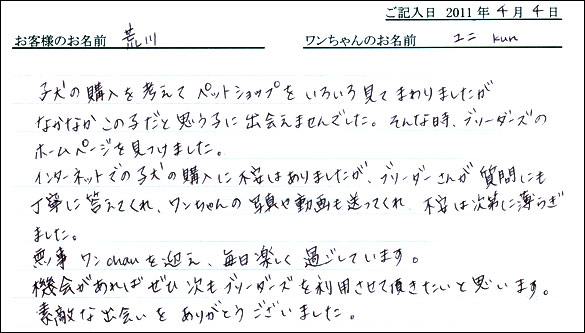 ご記入日 2011年 4月 4日
お客様のお名前 荒川 ワンちゃんのお名前 ユニ kun
子犬の購入を考えて ペットショップを いろいろ見て まわりましたが
なかなか この子だと 思う子に 出会えませんでした。そんな時、ブリーダーズの
ホームページを見つけました。
インターネットでの子犬の購入に 不安はありましたが、ブリーダーさんが 質問にも
丁寧に 答えてくれ、ワンちゃんの 写真や動画も送ってくれ 不安は次第に薄らぎ
ました。
無事 ワンchanを迎え、毎日楽しく 過ごしています。
機会があればぜひ 次も ブリーダーズ を利用させて頂きたいと 思います。
素敵な 出会いを ありがとう ございました。